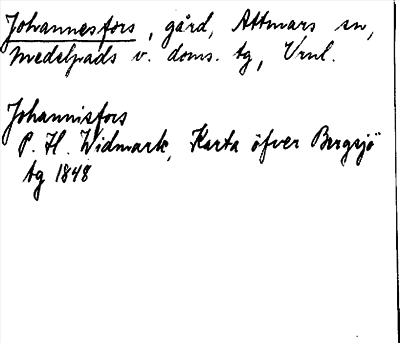 Johannesfors, gård, Attmars sn,
Medelpads v. doms. tg, Vrnl.
Johannisfors
P. H. Widmark, Karta öfver Bergsjö
tg 1848